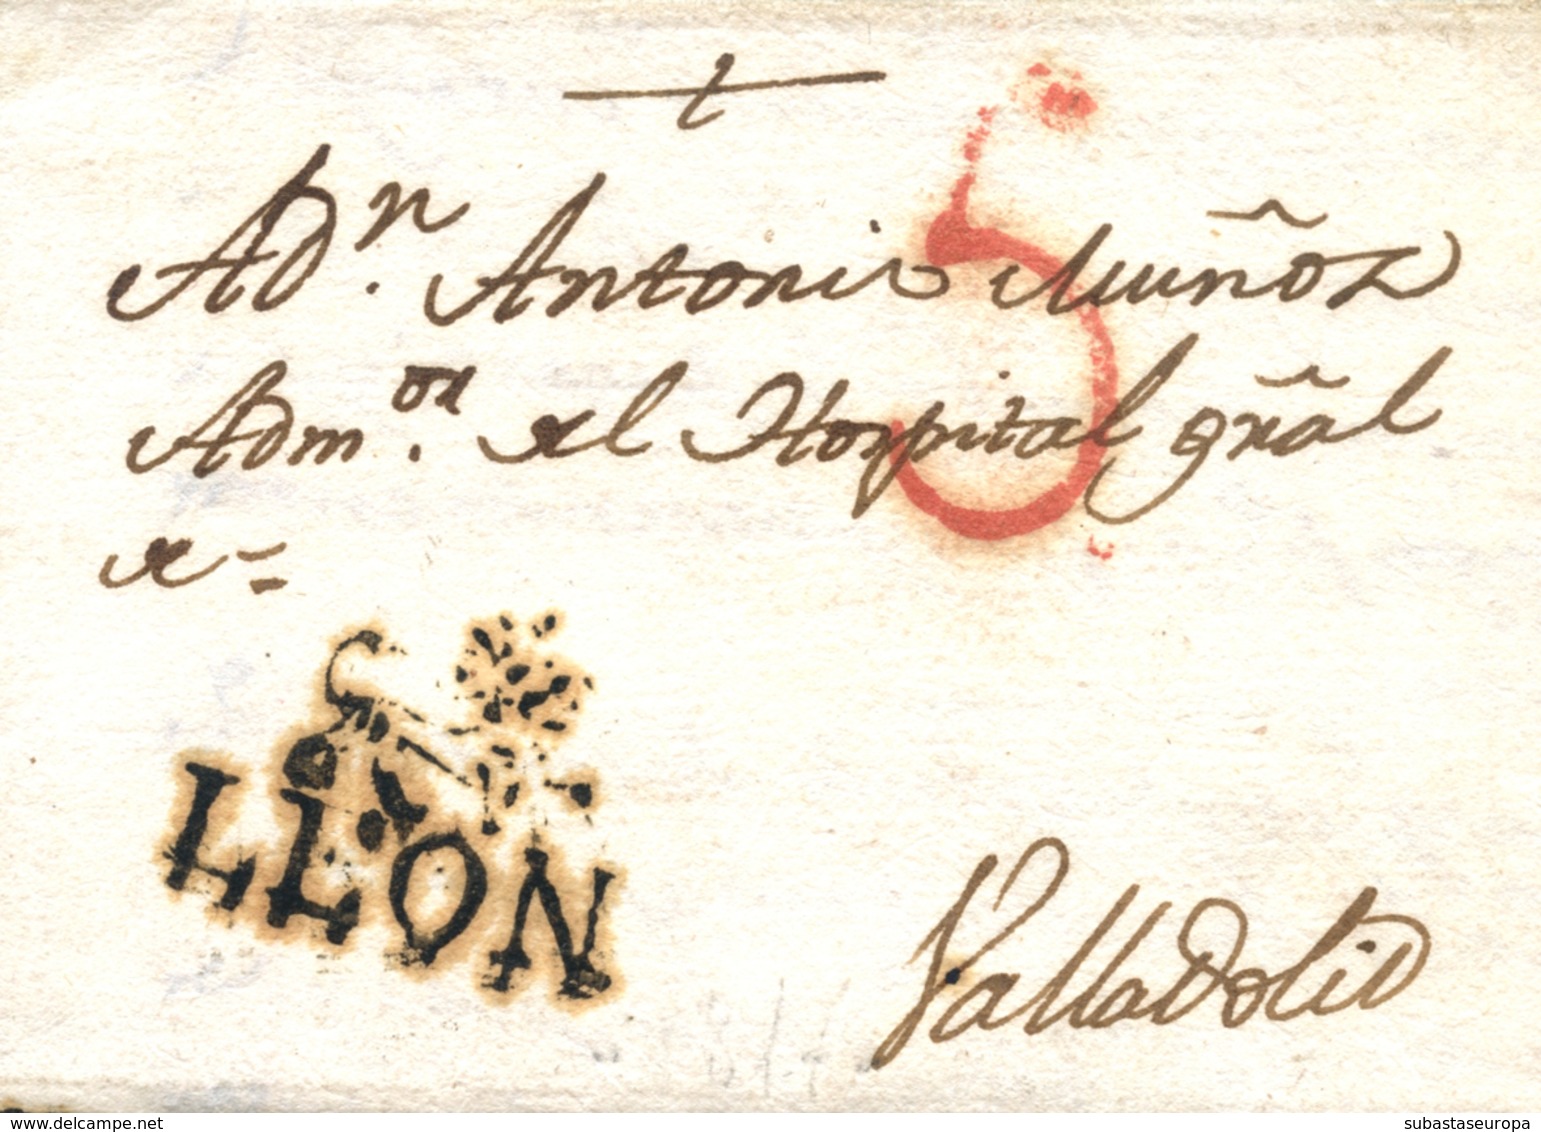 †
A Dn. Antonio Muñoz
Admor. del Hospital gñal
de =
5
LEON
Valladolid
www.delcampe.net
subastaseuropa